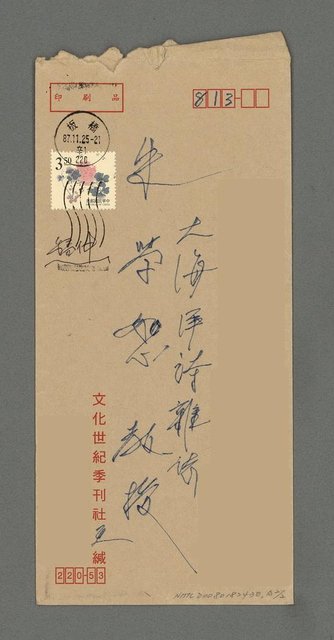 印刷品
813
板橋
87.11.25-21
220
3.50
大海洋詩雜誌
朱學恕教授
文化世紀季刊社
緘
220-53